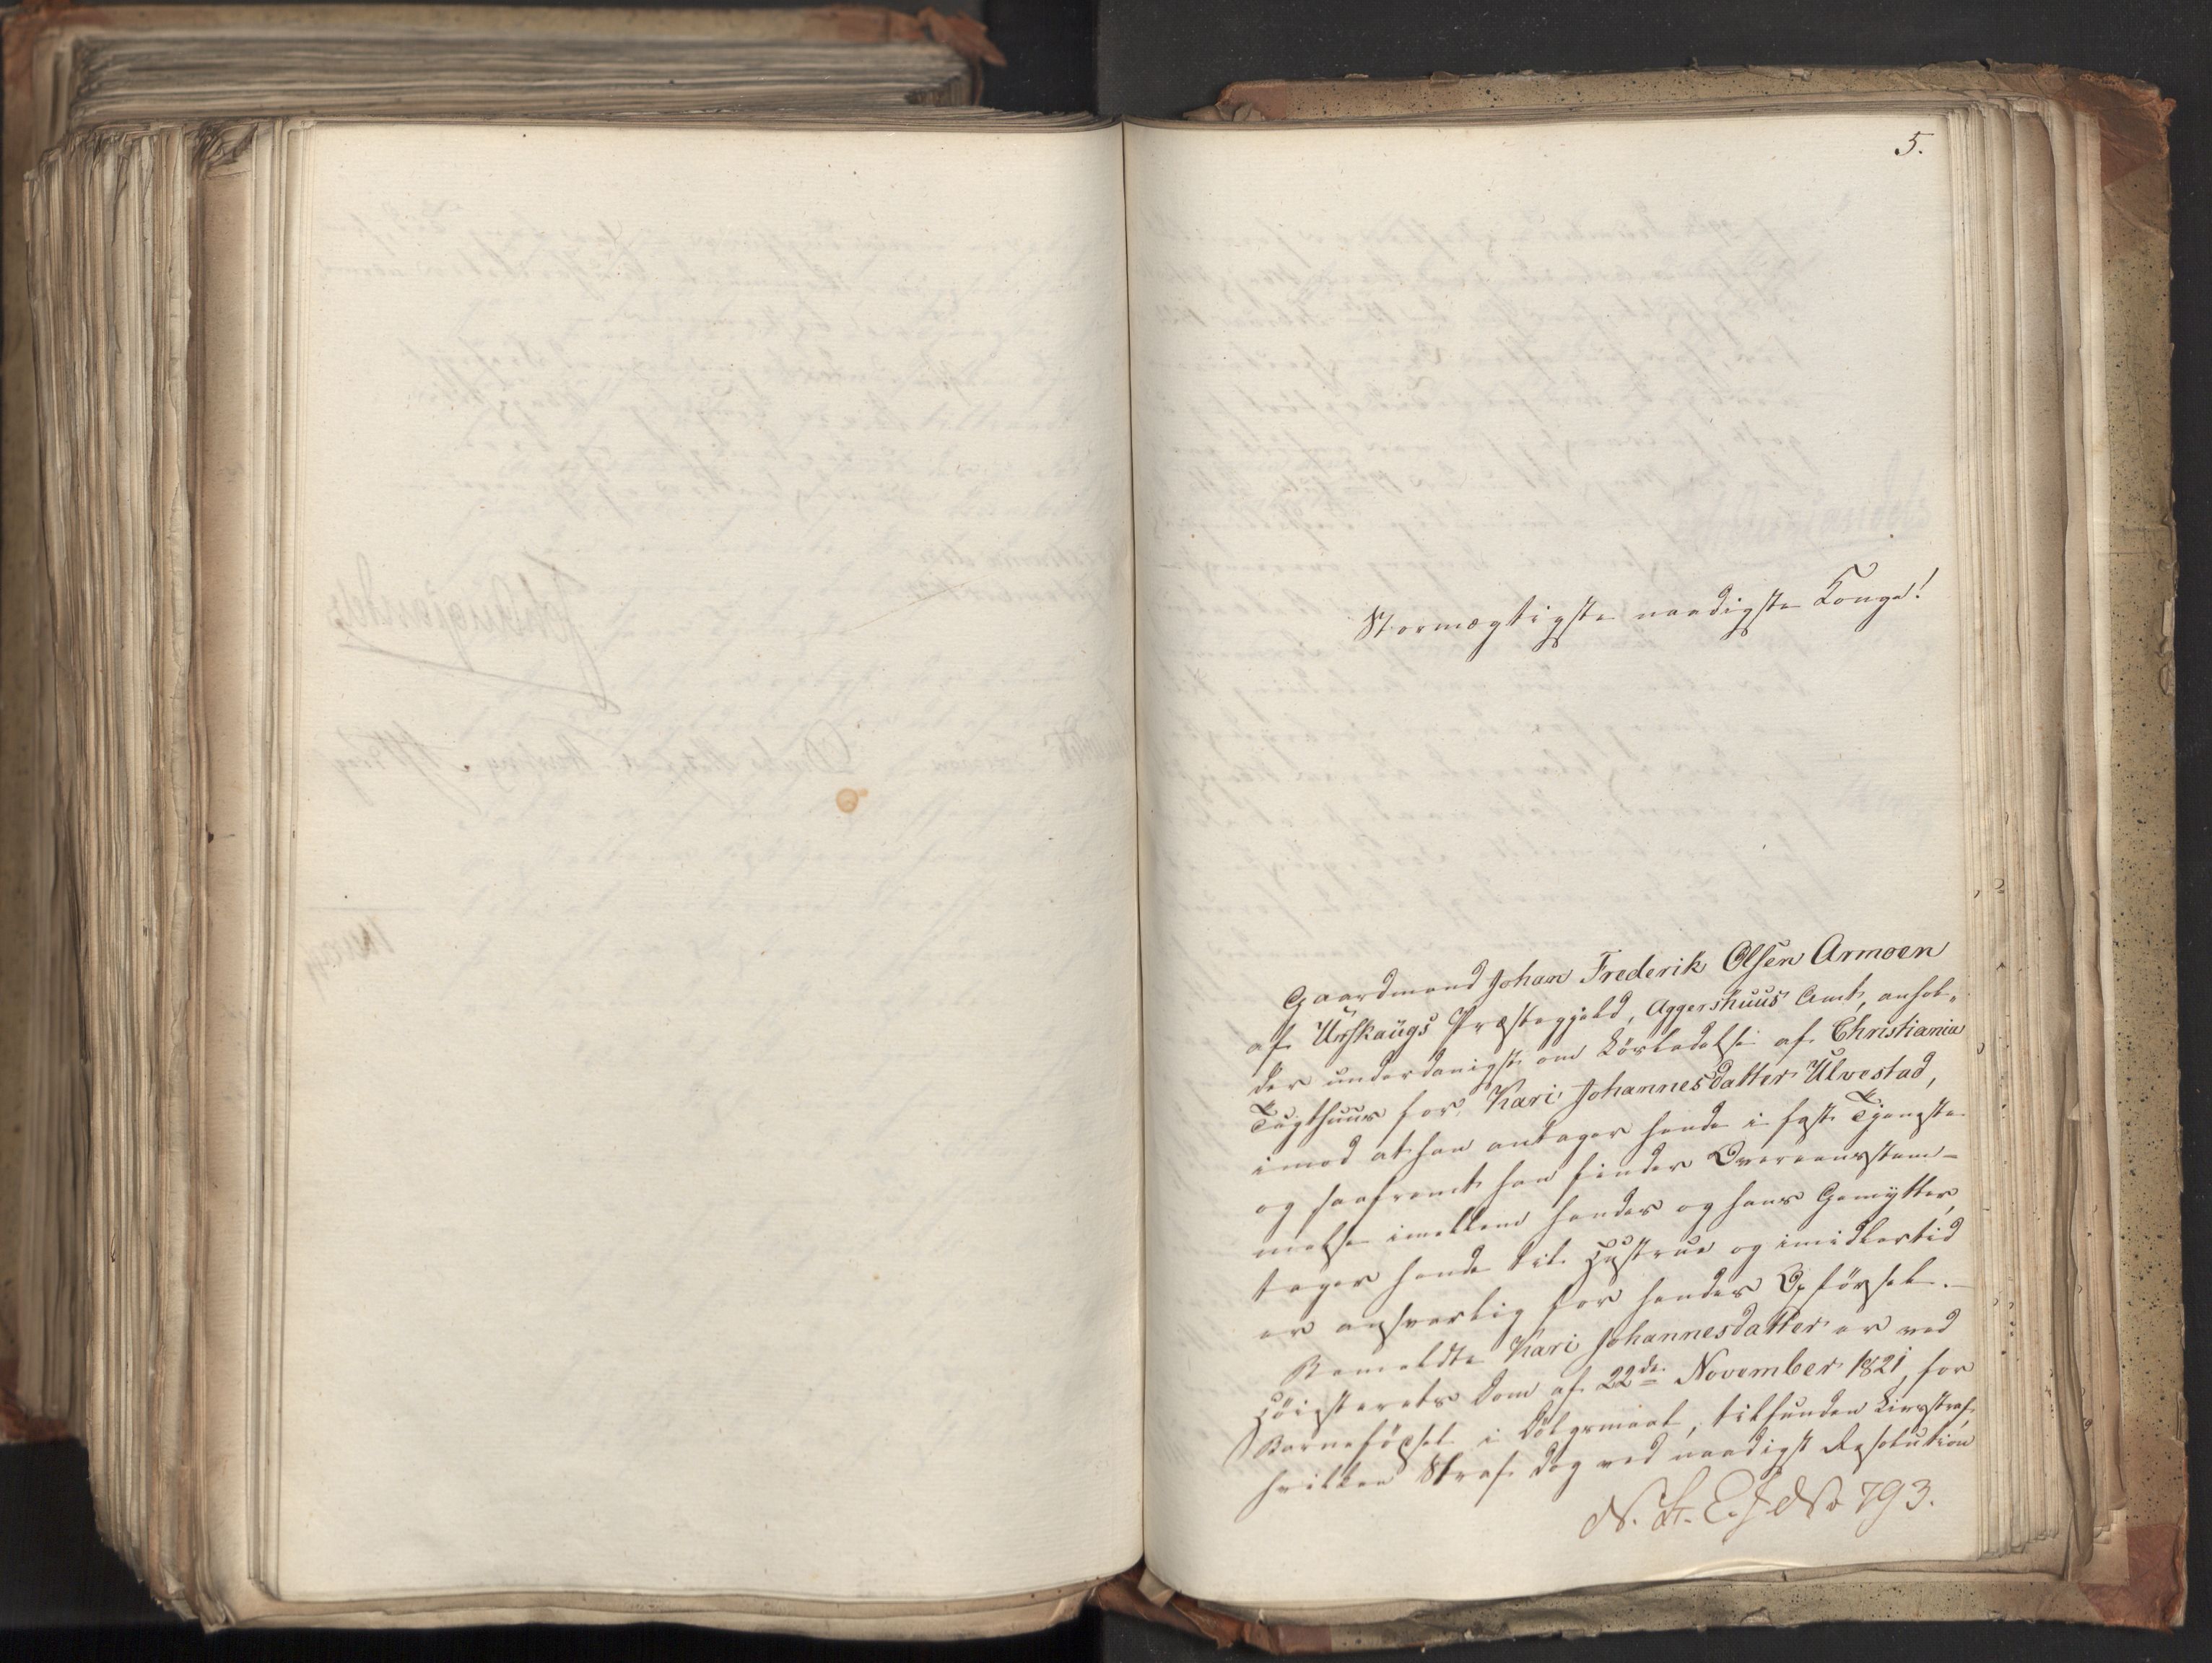 5.
Stormægtigste naadigste Konge!
Gaardmand Johan Frederik Olsen Armoen
af Urskaugs Præstegjeld, Aggershuus Amt, anhol-
der underdanigst om Løsladelse af Christiania
Tugthuus for Kari Johannesdatter Ulvestad,
imod at han antager hende i fast Tjeneste
og saafremt han finder Overeenstem-
melse imellem hendes og hans Gemytter,
tager hende til Hustrue og imidlertid
er ansvarlig for hendes Opførsel.
Bemeldte Kari Johannesdatter er ved
Høiesterets Dom af 22de November 1821, for
Barnefødsel i Dølgsmaal, tilfunden Livsstraf,
hvilken Straf dog ved naadigst Resolution
N. St. E. J No 793.